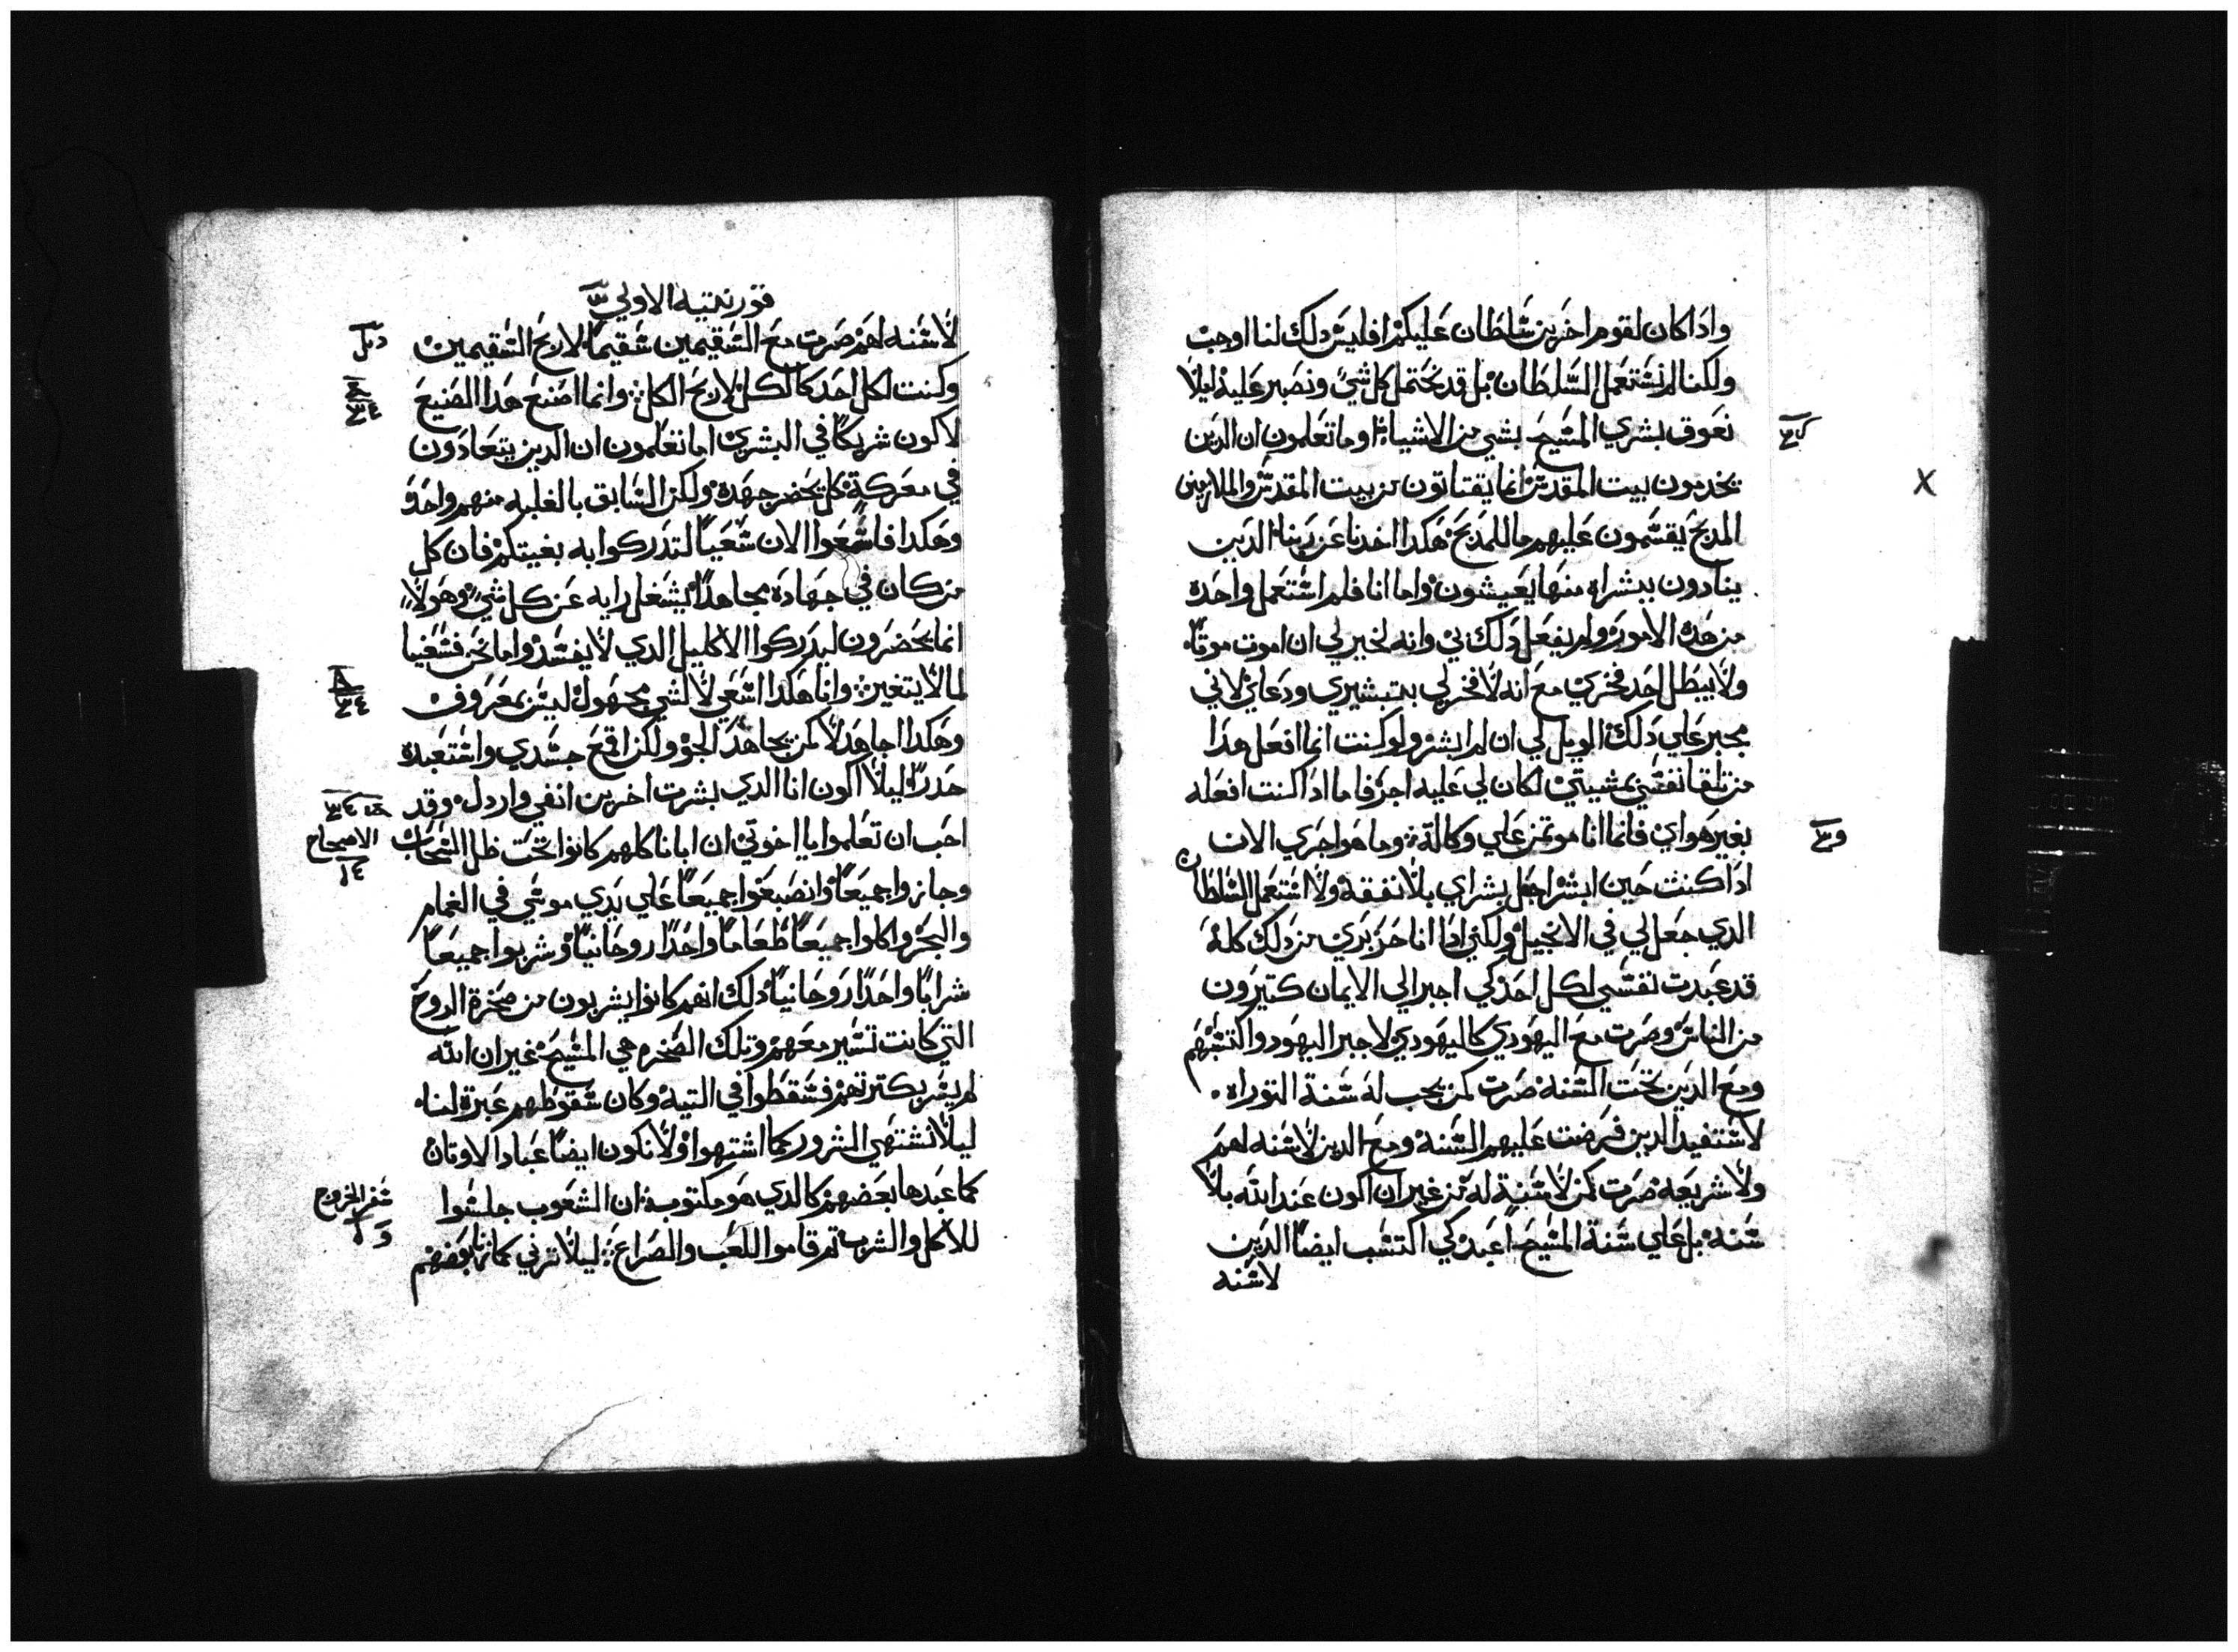 واذا كان لقوم اخرين سلطان عليكم افليس دلك لنا اوجب
ولكنا لم نستعمل السلطان بل قد نحتمل كل شي ونصبر عليه ليلا
نعوق بشري المسيح بشي من الاشياء اوما تعلمون ان الدين
يخدمون بيت المقدس انما يقتاتون من بيت المقدس والملازمين
المدبح يقسمون عليهم ما للمدبح هكدا اخدنا عن ربنا الدين
ينادون ببشراه منها يعيشون واما انا فلم استعمل واحده
من هده الامور ولم يفعل دلك بي وانه لخير لي ان اموت موتا
ولا يبطل احد فخري مع انه لا فخر لي بتبشيري ودعاي لاني
مجبر علي دلك الويل لي ان لم ابشر ولو كنت انما افعل هدا
من تلقا نفسي بمشيتي لكان لي عليه اجر فاما ادا كنت افعله
بغير هواي فانما انا موتمن علي وكالة وما هو اجري الان
ادا كنت حين ابشر اجعل بشراي بلا نفقه ولا استعمل السلطان
الدي جعل لي في الانجيل ولكني ادا انا حر بري من دلك كله
قد عبدت نفسي لكل احد كي اجبر الي الايمان كتيرون
من الناس وصرت مع اليهودي كاليهودي لاجبر اليهود واكتسبهم
ومع الدين تحت السنه صرت كمن يجب له سنة التوراه
لاستفيد الدين فرضت عليهم السنه ومع الدين لا سنه لهم
ولا شريعه صرت كمن لا سنة له من غير ان اكون عند الله بلا
سنه بل علي سنة المسيح اعبد كي اكتسب ايضا الدين
لا سنه
قورنتيه الاولي
لا سنه لهم صرت مع السقيمين سقيما لاربح السقيمين
وكنت لكل احد كالكل لاربح الكل وانما اصنع هدا الصنيع
لاكون شريكا في البشري اما تعلمون ان الدين يتعادون
في معركة كل يحضر جهده ولكن السابق بالغلبه منهم واحد
وهكدا فاسعوا الان سعيا لتدركوا به بغيتكم فان كل
من كان في جهاده مجاهدا يشغل رايه عن كل شي وهولا
انما يحضرون ليدركوا الاكليل الدي لا يفسد واما نحن فسعينا
لما لا يتغير وانا هكدا اسعي لا لشي مجهول ليس بمعروف
وهكدا اجاهد لا كمن يجاهد الجو ولكن اقمع جسدي واستعبده
حدرا ليلا اكون انا الدي بشرت اخرين انفي واردل وقد
احب ان تعلموا يا اخوتي ان ابانا كلهم كانوا تحت ظل السحاب
الاصحاح
وجازوا جميعا وانصبغوا جميعا علي يدي موسي في الغمام
والبحر واكلوا جميعا طعاما واحدا روحانيا وشربوا جميعا
شرابا واحدا روحانيا دلك انهم كانوا يشربون من صخرة الروح
التي كانت تسير معهم وتلك الصخره هي المسيح غير ان الله
لم يسر بكترتهم فسقطوا في التيه وكان سقوطهم عبرة لنا
ليلا نشتهي الشرور كما اشتهوا ولا نكون ايضا عباد الاوتان
كما عبدها بعضهم كالدي هو مكتوب ان الشعوب جلسوا
سفر الخروج
للاكل والشرب تم قاموا اللعب والصراع ليلا نزني كما زنا بعضهم